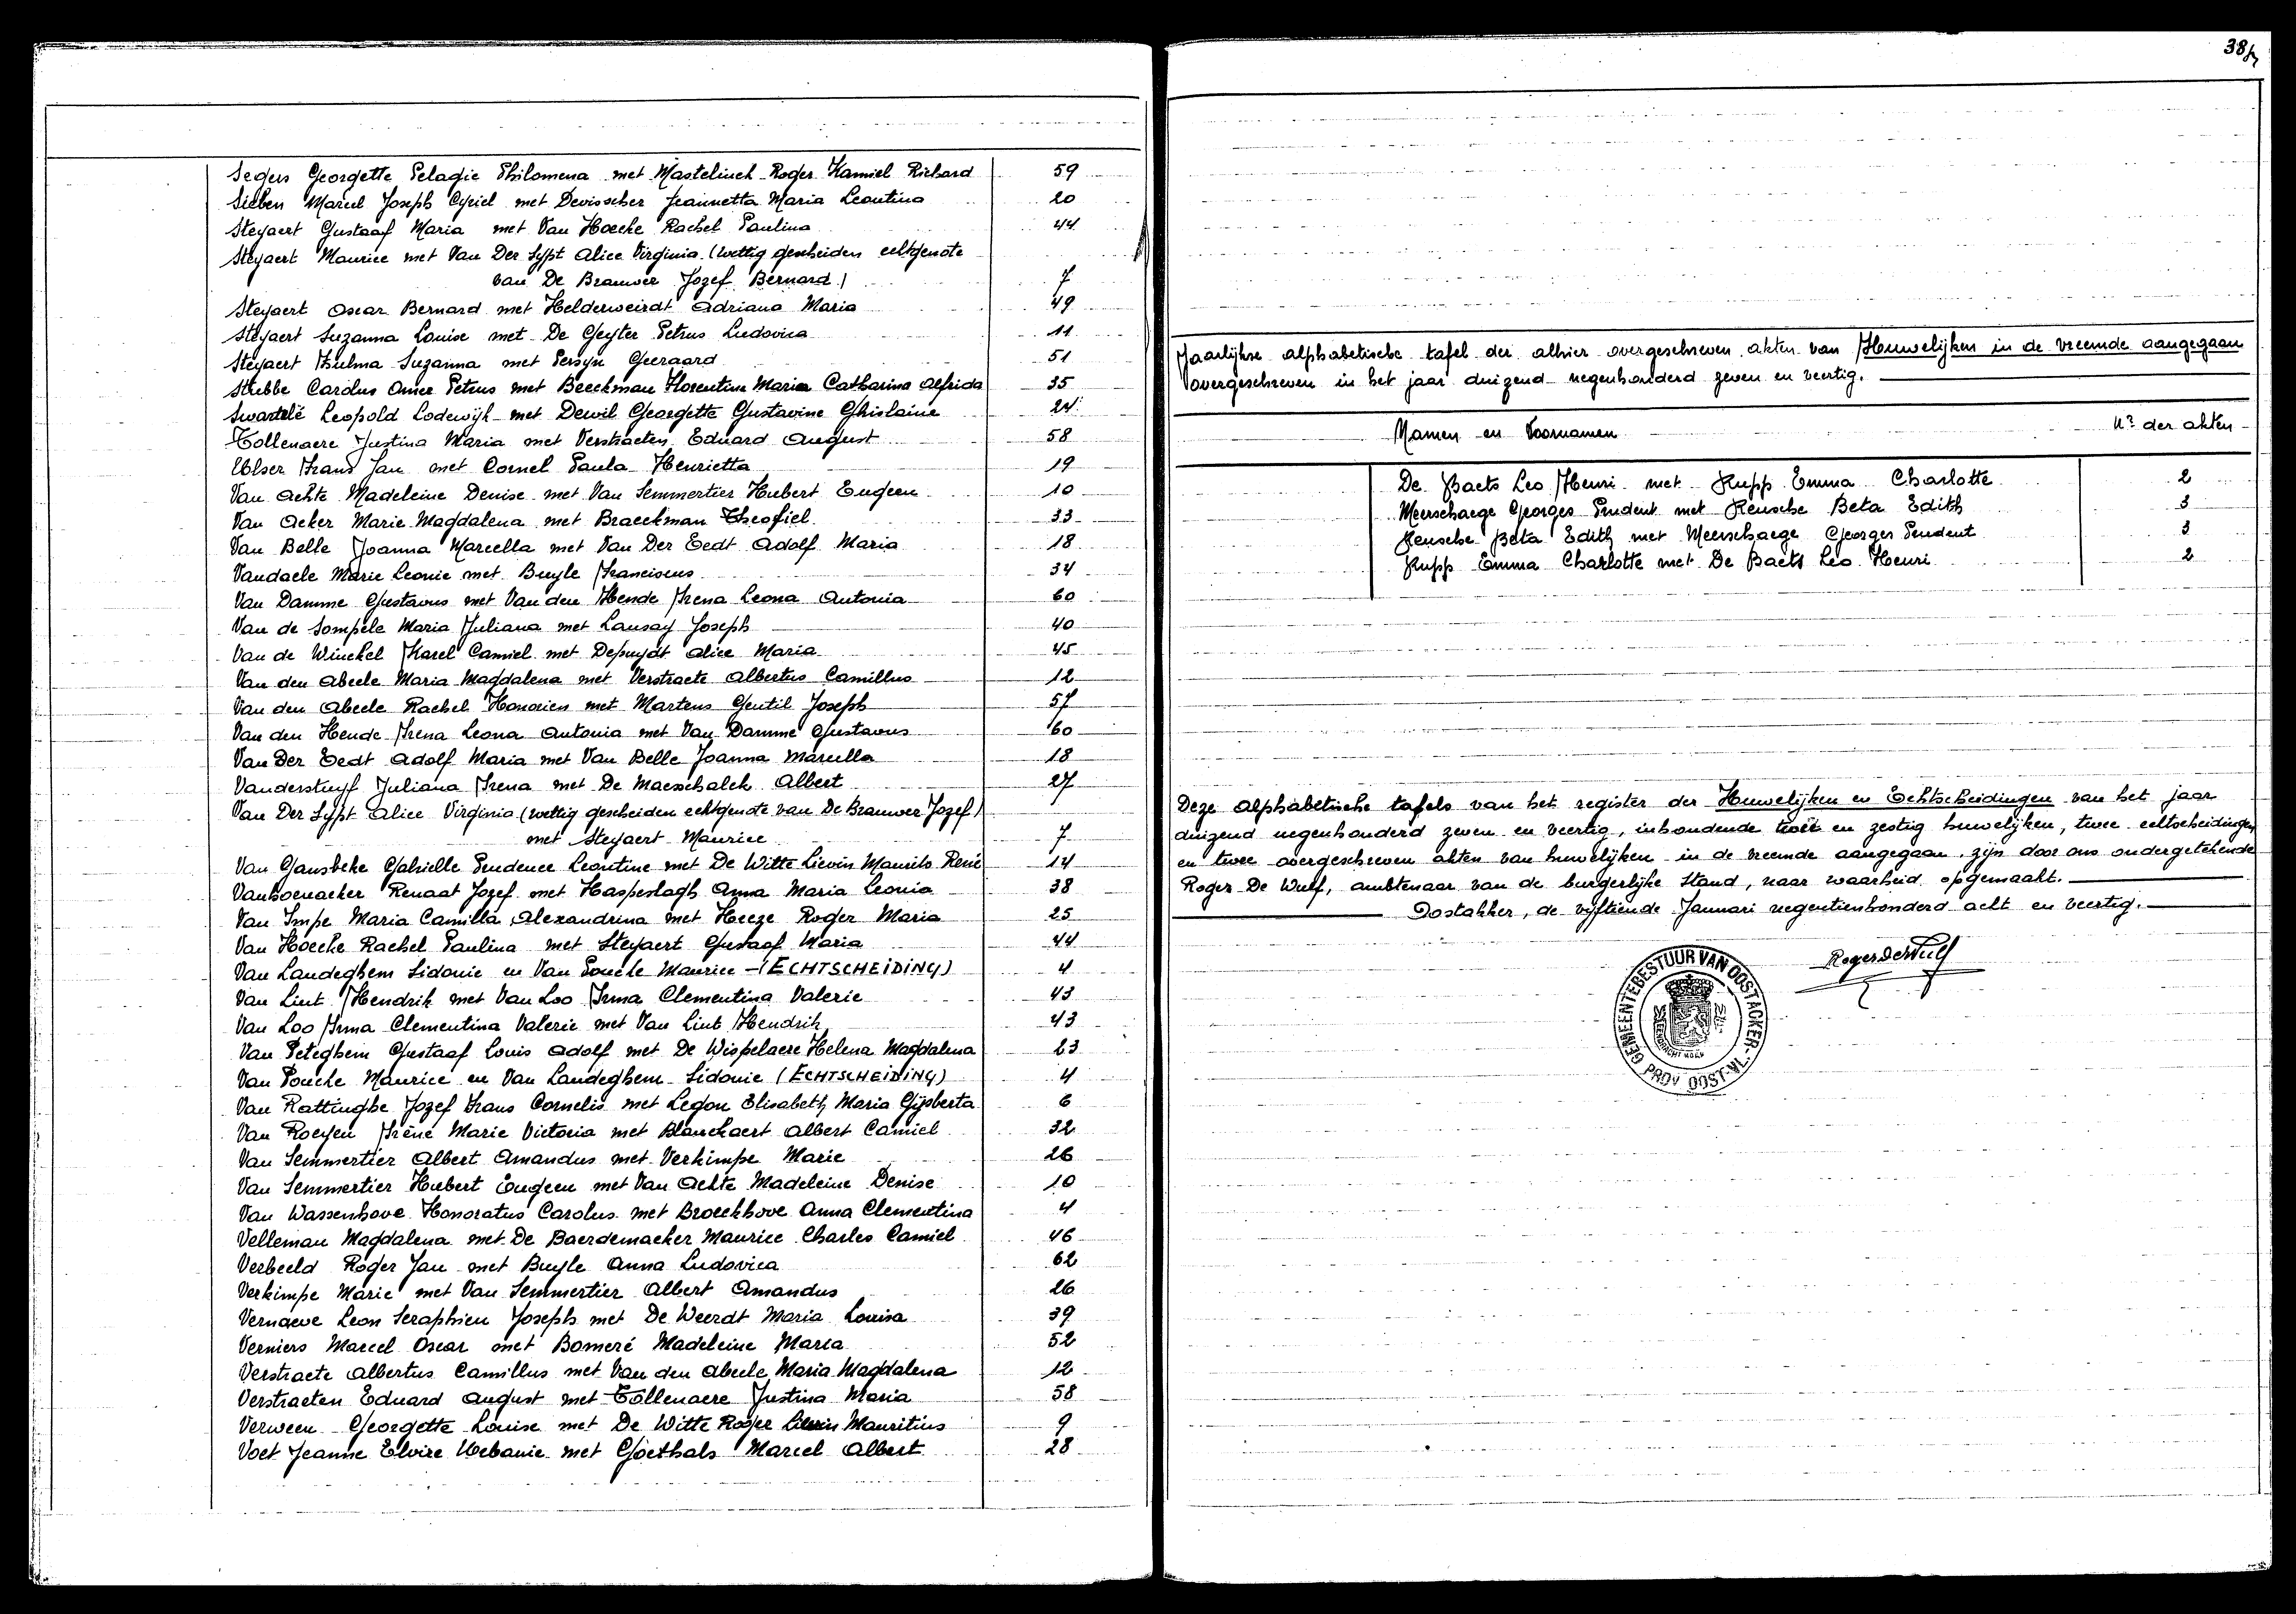 38
Segers Georgette Pelagie Philomena met Mastelinck Roger Kamiel Richard 59
Sieben Marcel Joseph Cyriel met Devisscher Jeannetta Maria Leontina 20
Steyaert Gustaaf Maria met Van Hoecke Rachel Paulina 44
Steyaert Maurice met Van Der Sypt Alice Virginia (wettig gescheiden echtgenote
van De Brauwer Jozef Bernard) 7
Steyaert Oscar Bernard met Helderweirdt Adriana Maria 49
Steyaert Suzanna Louise met De Geyter Petrus Ludovica 11
Steyaert Thelma Suzanna met Persyn Geeraard 51
Stubbe Carolus Omer Petrus met Beeckman Florentine Maria Catharina Alfrida 35
Swartelé Leopold Lodewijk met Dewil Georgette Gustavine Ghislaine 24
Tollenaere Justina Maria met Verstraeten Eduard August 58
Frans Jan met Cornel Paula Henrietta 19
Van Achte Madeleine Denise met Van Semmertier Hubert Eugeen 10
Van Acker Marie Magdalena met Braeckman Theofiel 33
Van Belle Joanna Marcella met Van Der Eedt Adolf Maria 18
Vandaele Marie Leonie met Buyle Franciscus 34
Van Damme Gustavus met Van den Hende Irena Leona Antonia 60
Van de Sompele Maria Juliana met Lausay Joseph 40
Van de Winckel Karel Camiel met Depuydt Alice Maria 45
Van den Abeele Maria Magdalena met Verstraete Albertus Camillus 12
Van den Abeele Rachel Honorien met Martens Gentil Joseph 57
Van den Hende Irena Leona Antonia met Van Damme Gustavus 60
Van Der Eedt Adolf Maria met Van Belle Joanna Marcella 18
Vanderstuyf Juliana Irena met De Maesschalck Albert 27
Van Der Sypt Alice Virginia (wettig gescheiden echtgenote van De Brauwer Jozef)
met Steyaert Maurice 7
Van Gansbeke Gabrielle Prudence Leontine met De Witte Lievin Maurits René 14
Vanhoenacker Renaat Jozef met Haspeslagh Anna Maria Leonia 38
Van Impe Maria Camilla Alexandrina met Heeze Roger Maria 25
Van Hoecke Rachel Paulina met Steyaert Gustaaf Maria 44
Van Landeghem Sidonie en Van Poucke Maurice - (ECHTSCHEIDING) 4
Van Lint Hendrik met Van Loo Irma Clementina Valerie 43
Van Loo Irma Clementina Valerie met Van Lint Hendrik 43
Van Peteghem Gustaaf Louis Adolf met De Wispelaere Helena Magdalena 23
Van Poucke Maurice en Van Landeghem Sidonie (ECHTSCHEIDING) 4
Van Rattinghe Jozef Frans Cornelis met Ledon Elisabeth Maria Gijsberta 6
Van Roeyen Irène Marie Victoria met Blanckaert Albert Camiel 32
Van Semmertier Albert Amandus met Verkimpe Marie 26
Van Semmertier Hubert Eugeen met Van Achte Madeleine Denise 10
Van Wassenhove Honoratus Carolus met Broeckhove Anna Clementina 4
Velleman Magdalena met De Baerdemaeker Maurice Charles Camiel 46
Verbeeld Roger Jan met Buyle Anna Ludovica 62
Verkimpe Marie met Van Semmertier Albert Amandus 26
Vernaeve Leon Seraphien Joseph met De Weerdt Maria Louisa 39
Verniers Marcel Oscar met Bomeré Madeleine Maria 52
Verstraete Albertus Camillus met Van den Abeele Maria Magdalena 12
Verstraeten Eduard August met Tollenaere Justina Maria 58
Verween Georgette Louise met De Witte Roger Lievin Mauritius 9
Voet Jeanne Elvire Urbanie met Goethals Marcel Albert 28
Jaarlijkse alphabetische tafel der alhier overgeschreven akten van Huwelijken in de vreemde aangegaan
overgeschreven in het jaar duizend negenhonderd zeven en veertig.
Namen en Voornamen Nr der akten
De Baets Leo Henri met Rupp Emma Charlotte 2
Meerschaege Georges Prudent met Reusche Beta Edith 3
Reusche Beta Edith met Meerschaege Georges Prudent 3
Rupp Emma Charlotte met De Baets Leo Henri 2
Deze alphabetische tafels van het register der Huwelijken en Echtscheidingen van het jaar
duizend negenhonderd zeven en veertig, inhoudende twee en zestig huwelijken, twee echtscheidingen
en twee overgeschreven akten van huwelijken in de vreemde aangegaan, zijn door ons ondergetekende
Roger De Wulf, ambtenaar van de burgerlijke stand, naar waarheid opgemaakt.
Oostakker, de vijftiende Januari negentienhonderd acht en veertig.
Roger De Wulf
GEMEENTEBESTUUR VAN OOSTACKER
PROV OOST-VL.